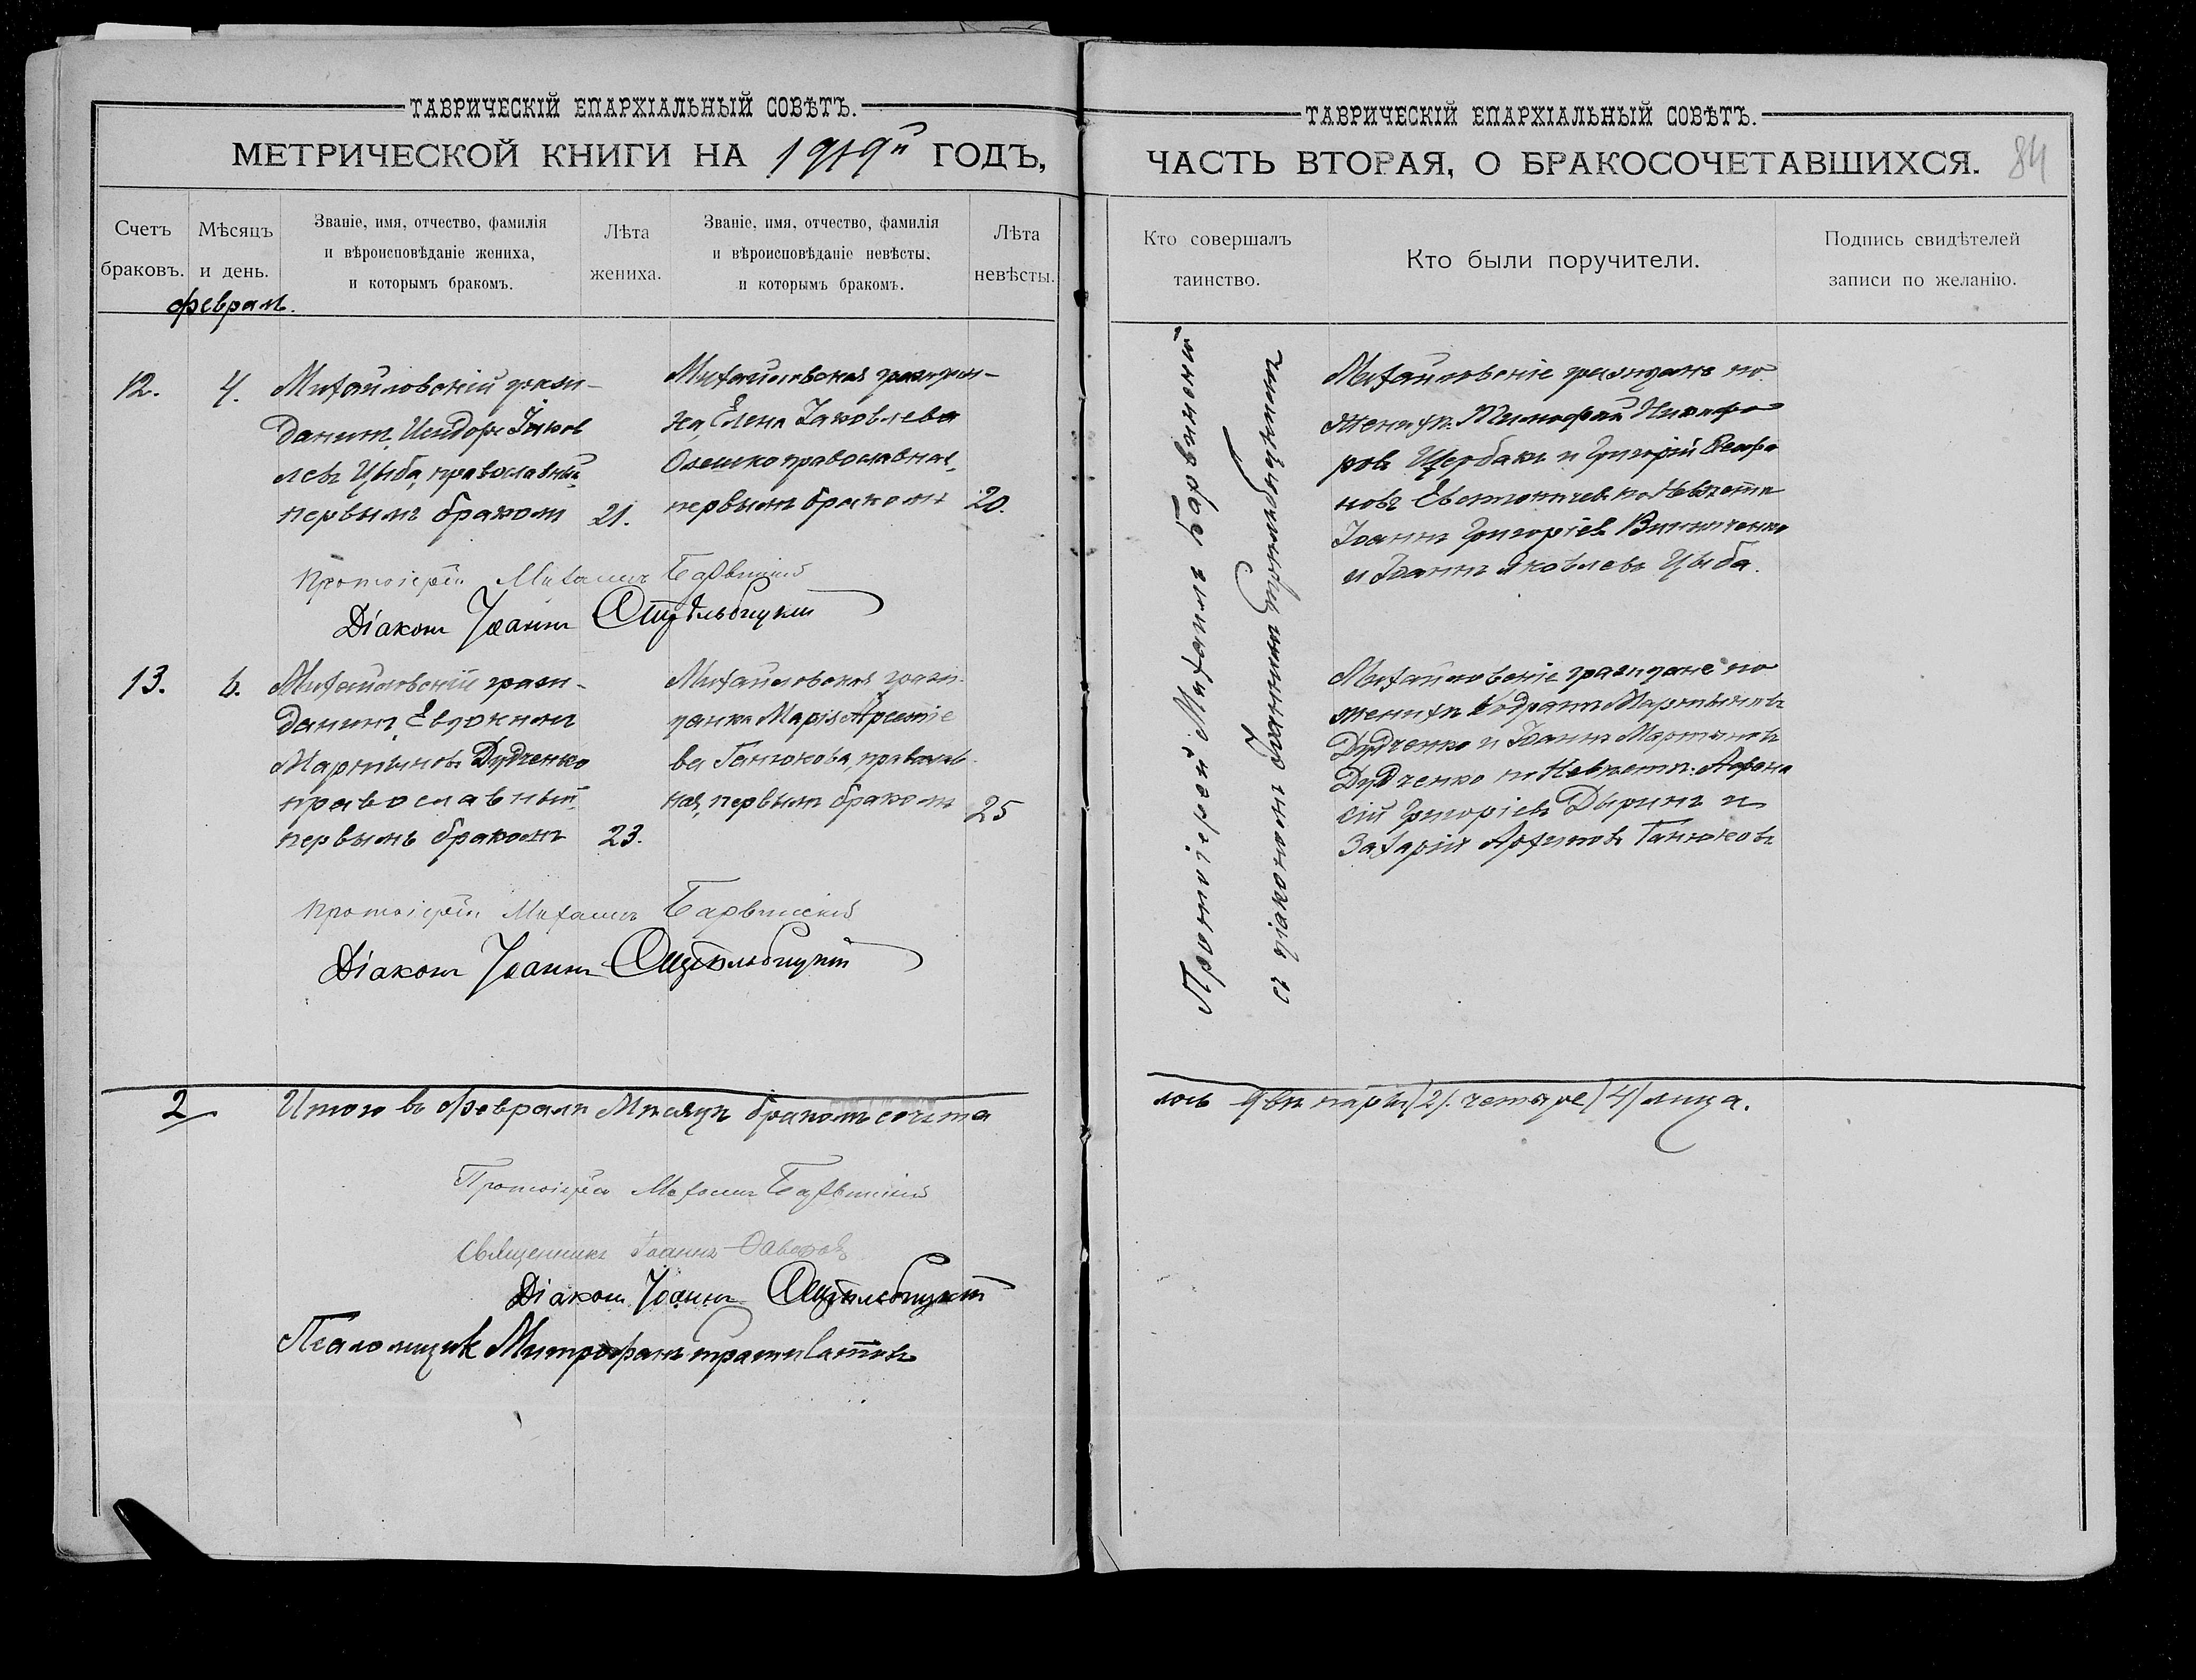 ТАВРИЧЕСКІЙ ЕПАРХІАЛЬНЫЙ СОВѢТЪ.
МЕТРИЧЕСКОЙ КНИГИ НА 1919й ГОДЪ,
Счетъ браковъ.
Мѣсяцъ и день.
Званіе, имя, отчество, фамилія
и вѣроисповѣданіе жениха,
и которымъ бракомъ.
Лѣта
жениха.
Званіе, имя, отчество, фамилія
и вѣроисповѣданіе невѣсты,
и которымъ бракомъ.
Лѣта
невѣсты.
февраль.
12.
4.
Михайловскій граж-
данинъ Исидоръ Іаков
левъ Цыба, православный,
первымъ бракомъ
21.
Михайловская граждан-
ка, Елена Іаковлева
Олешко православная,
первымъ бракомъ
20.
Протоіерей Михаилъ Барвинскій
Діаконъ Іоаннъ
13.
6.
Михайловскій граж-
данинъ Евдокимъ
Мартыновъ Дудченко
православный,
первымъ бракомъ
23.
Михайловская граж-
данка Марія Арсеніе
ва Ганюкова, православ-
ная, первымъ бракомъ
25
Протоіерей Михаилъ Барвинскій
Діаконъ Іоаннъ
2
Итого въ февралѣ мѣсяцѣ бракомъ сочета
Протоіерей Михаилъ Барвинскій
Священникъ Іоаннъ
Діаконъ Іоаннъ
Псаломщик Митрофанъ
ТАВРИЧЕСКІЙ ЕПАРХІАЛЬНЫЙ СОВѢТЪ.
ЧАСТЬ ВТОРАЯ, О БРАКОСОЧЕТАВШИХСЯ.
84
Кто совершалъ
таинство.
Кто были поручители.
Подпись свидѣтелей
записи по желанію.
Протоіерей Михаилъ Барвинскій
съ діакономъ Іоанномъ
Михайловскіе граждане по
женихѣ: Тимофей Никифо
ровъ Щербакъ и Григорій
по невѣстѣ
Іоаннъ Григоріев Винниченко
и Іоаннъ Яковлевъ Цыба.
Михайловскіе граждане по
женихѣ Кодратъ Мартыновъ
Дудченко и Іоаннъ Мартыновъ
Дудченко по невѣстѣ: Афана
сій Григоріевъ Дыринъ и
Захарій Архиповъ Ганюковъ
лось двѣ пары (2). четыре (4) лица.